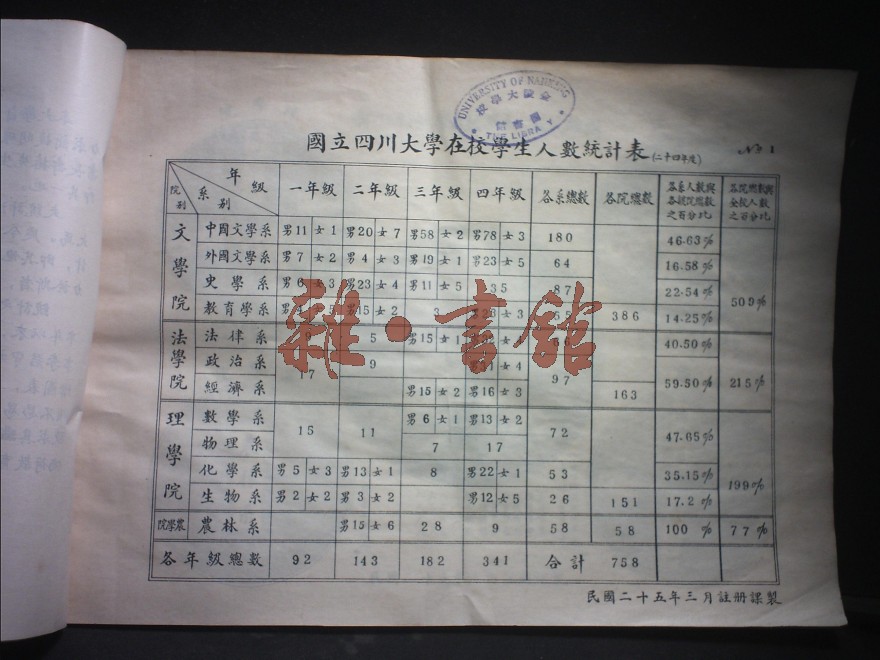 UNIVERSITY OF NANKING
校學大陵金
館書圖
THE LIBRARY
國立四川大學在校學生人數統計表(二十四年度)
№ 1
院別 系別 年級 一年級 二年級 三年級 四年級 各系總數 各院總數 各系人數與各該院總數之百分比 各院總數與全校人數之百分比
文學院 中國文學系 男11 女1 男20 女7 男58 女2 男78 女3 180 46.63%
外國文學系 男7 女2 男4 女3 男19 女1 男23 女5 64 16.58%
史學系 男6 女3 男23 女4 男11 女5 35 87 22.54%
教育學系 男15 女2 3 女3 55 386 14.25% 509%
法學院 法律系 5 男15 女1 40.50%
政治系 17 9 女4 97 59.50% 215%
經濟系 男15 女2 男16 女3 163
理學院 數學系 15 11 男6 女1 男13 女2 72 47.65%
物理系 7 17
化學系 男5 女3 男13 女1 8 男22 女1 53 35.15% 199%
生物系 男2 女2 男3 女2 男12 女5 26 151 17.2%
農學院 農林系 男15 女6 28 9 58 58 100% 77%
各年級總數 92 143 182 341 合計 758
民國二十五年三月註册課製
雜·書館